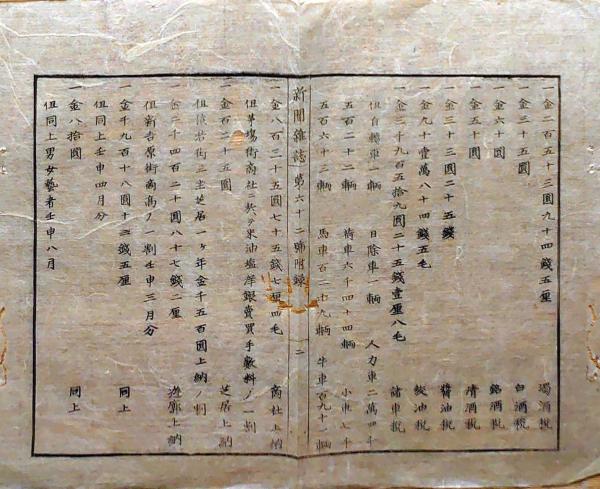 一金二百五十三圓九十四錢五厘 濁酒税
一金三十五圓 白酒税
一金六十圓 銘酒税
一金五十圓 清酒税
一金三十三圓二十五錢 醬油税
一金九十壹萬八十四錢五毛 絞油税
一金三千九百五拾九圓二十五錢壹厘八毛 諸車税
但自轉車一輌 日除車一輌 人力車二萬四千
五百二十二輌 荷車六千四十四輌 小車七千
五百六十二輌 馬車百二十九輌 牛車百九十二輌
新聞雜誌 第六十二號附錄 二
一金八百三十五圓七十五錢七厘四毛 商社上納
但茅場街商社ニ於テ米油塩洋銀賣買手數料ノ一割
一金百二十五圓 芝居上納
但猿若街三座芝居一ヶ年金千五百圓上納ノ割
一金二千四百二十圓八十七錢二厘 遊廓上納
但新吉原街商高ノ一割壬申三月分
一金千九百十八圓十三錢五厘 同上
但同上壬申四月分
一金八拾圓 同上
但同上男女藝者壬申八月